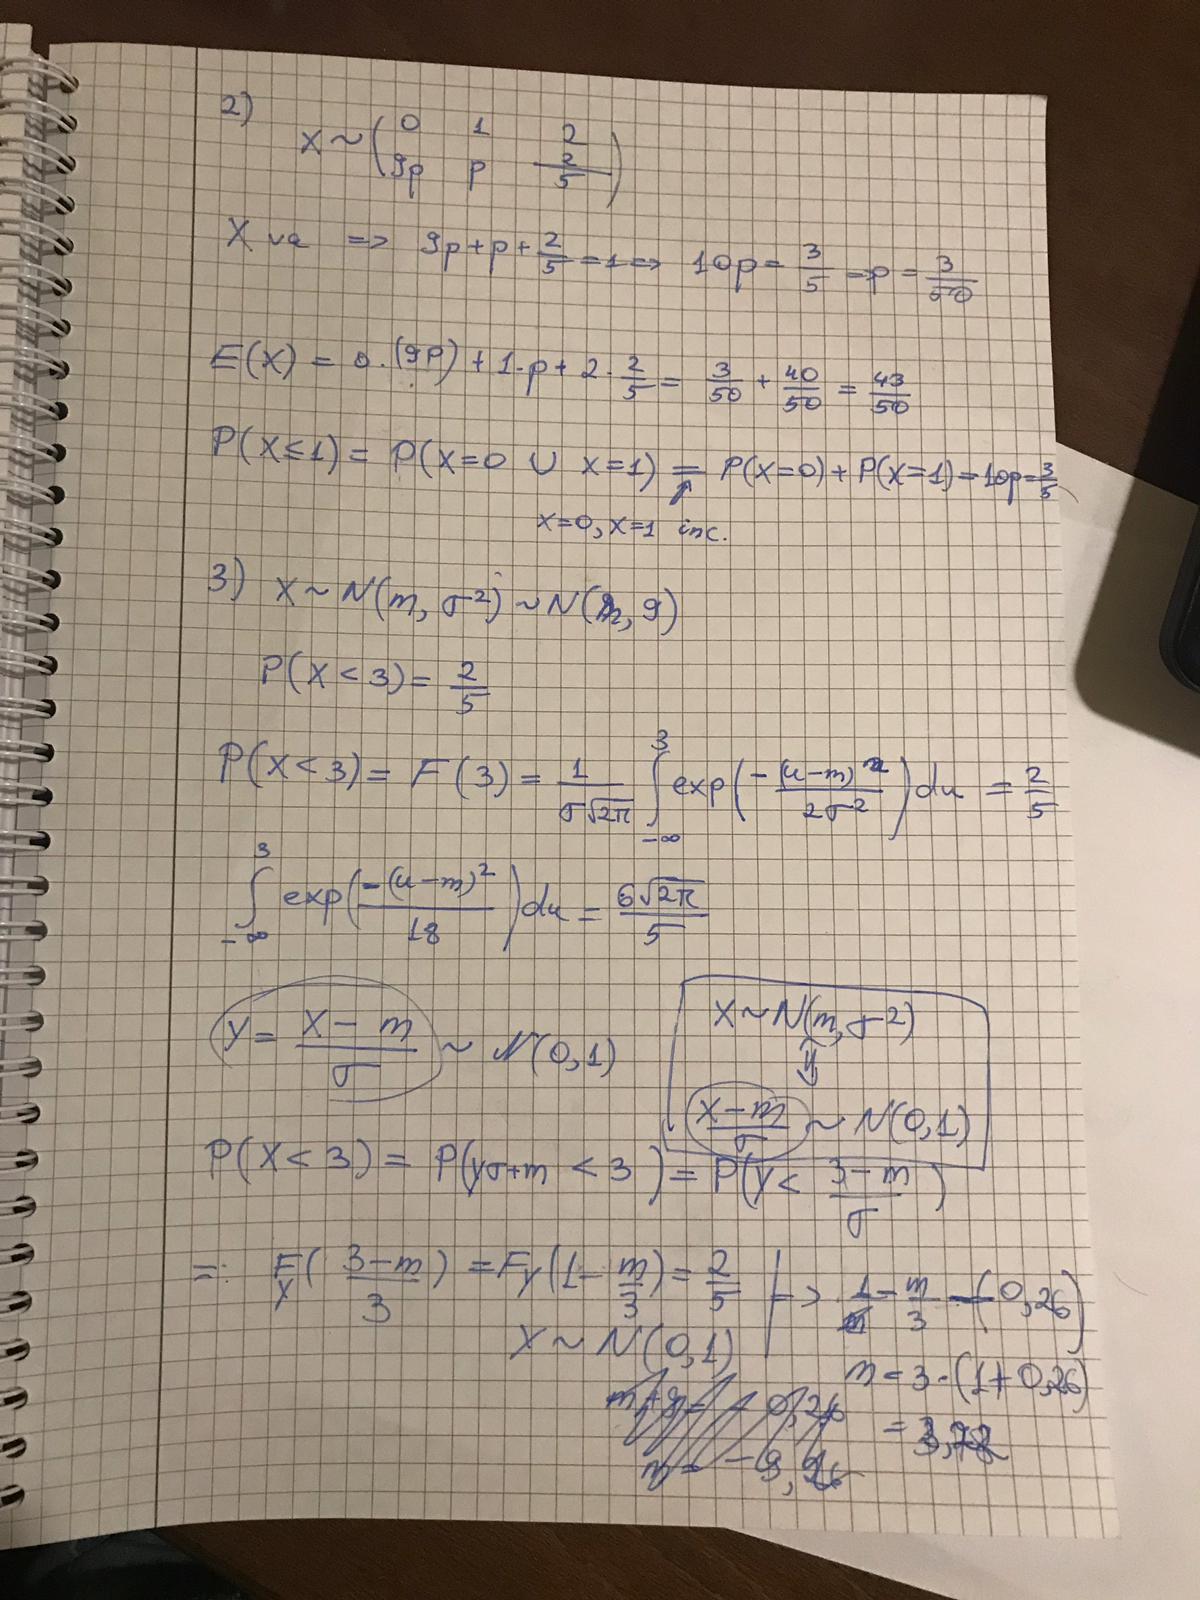 2)
X ~ ( 0 1 2
9p p 2/5 )
X va => 9p + p + 2/5 = 1 => 10p = 3/5 => p = 3/50
E(X) = 0·(9p) + 1·p + 2·2/5 = 3/50 + 40/50 = 43/50
P(X≤1) = P(X=0 ∪ X=1) = P(X=0) + P(X=1) = 10p = 3/5
X=0, X=1 inc.
3) X ~ N(m, σ²) ~ N(m, 9)
P(X < 3) = 2/5
P(X < 3) = F(3) = 1/(σ√2π) ∫_{-∞}^{3} exp(-(u-m)²/2σ²) du = 2/5
∫_{-∞}^{3} exp(-(u-m)²/18) du = 6√2π/5
Y = (X - m)/σ ~ N(0,1)
X ~ N(m, σ²)
⇕
(X-m)/σ ~ N(0,1)
P(X < 3) = P(Yσ+m < 3) = P(Y < (3-m)/σ)
= F_Y((3-m)/3) = F_Y(1 - m/3) = 2/5 | => 1 - m/3 = (-0,26)
X ~ N(0,1)
m = 3·(1+0,26)
= 3,78